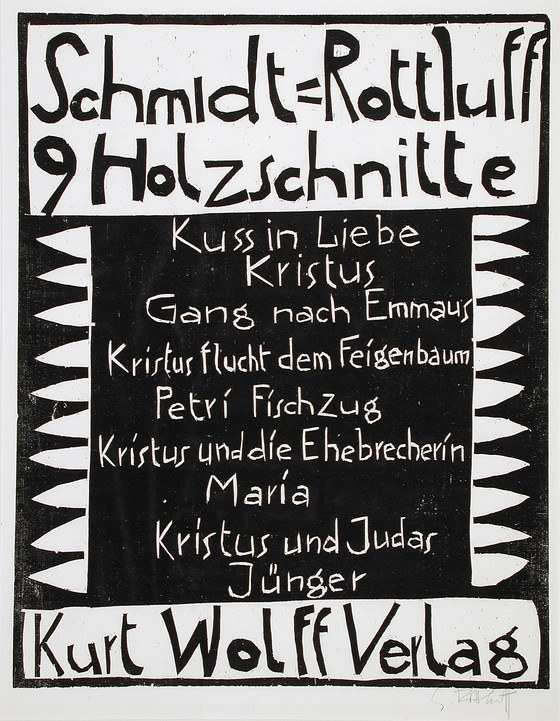 Schmidt=Rottluff
9 Holzschnitte
Kuss in Liebe
Kristus
Gang nach Emmaus
Kristus flucht dem Feigenbaum
Petri Fischzug
Kristus und die Ehebrecherin
Maria
Kristus und Judas
Jünger
Kurt Wolff Verlag
S. Rottluff